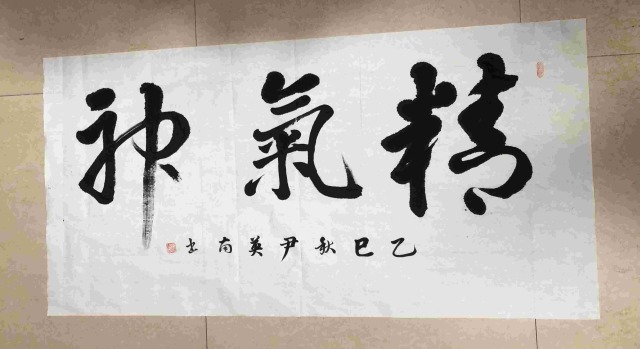 精氣神
乙巳秋尹英南书